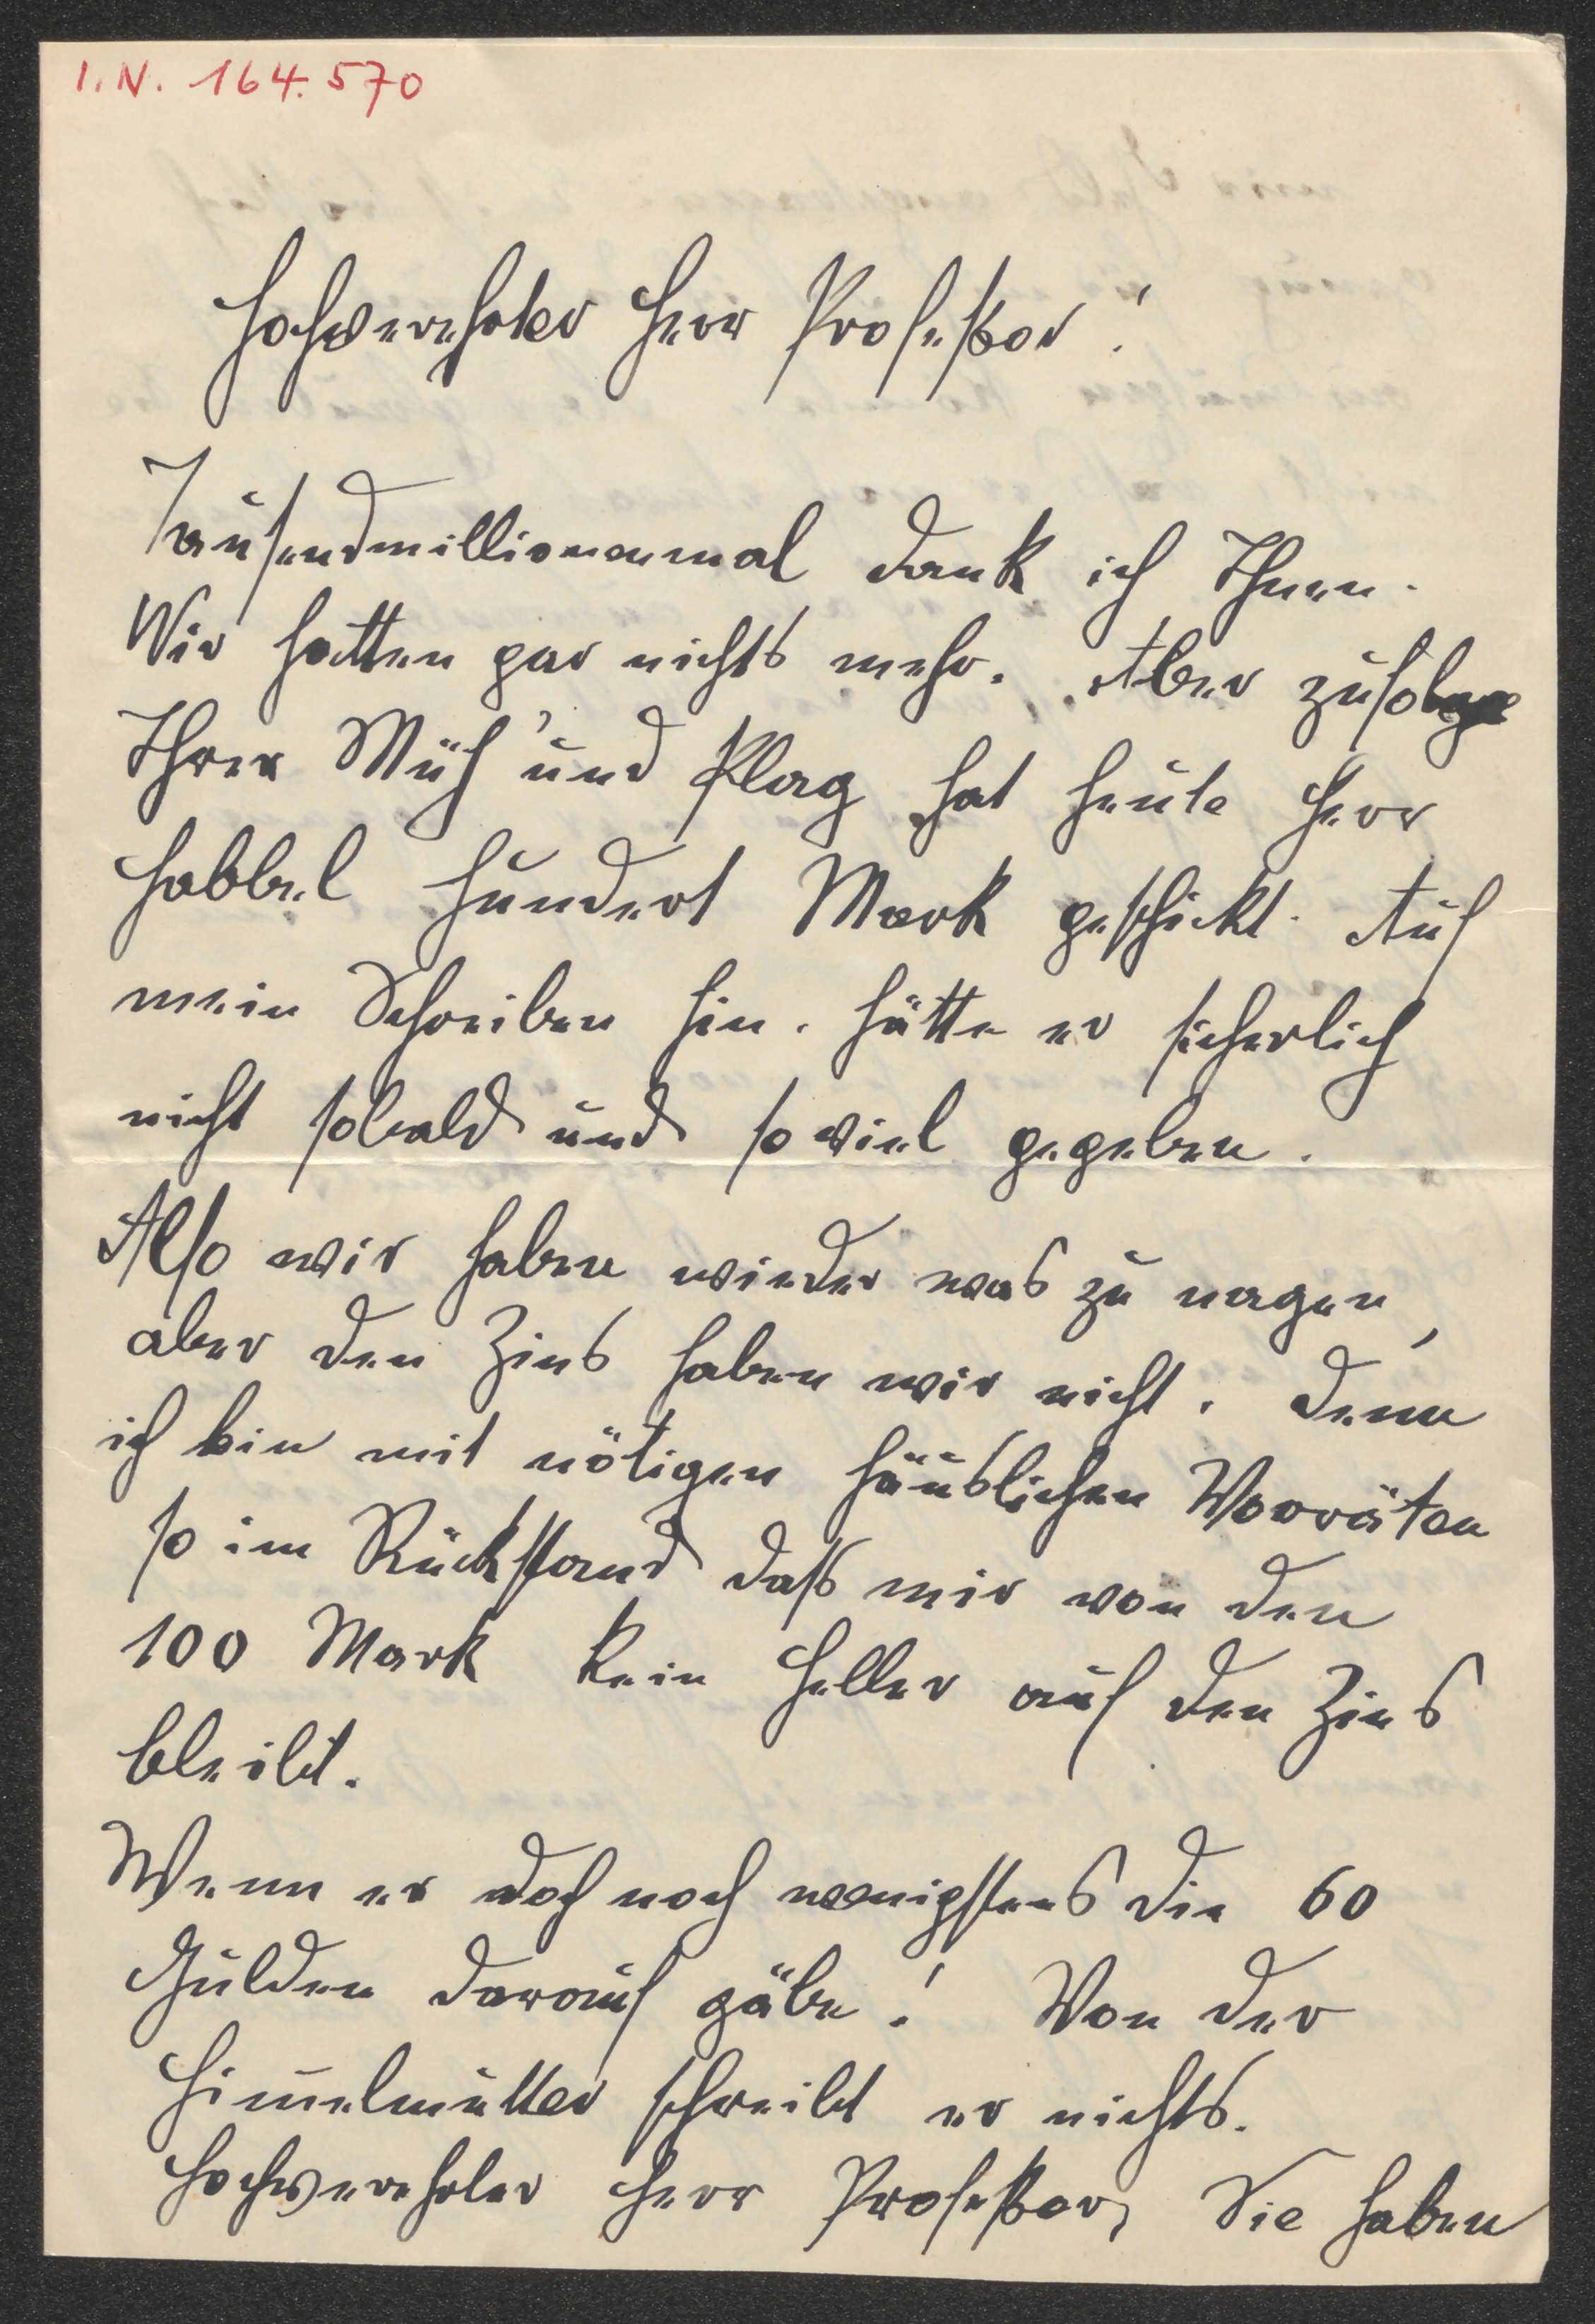 I.N. 164.570
Hochverehrter Herr Profeßor!
Tausendmillionenmal dank ich Ihnen.
Wir hatten gar nichts mehr. Aber zufolge
Ihrer Müh' und Plag hat heute Herr
Habbel hundert Mark geschickt. Auf
mein Schreiben hin. hätte er sicherlich
nicht sobald und soviel gegeben.
Also wir haben wieder was zu nagen,
aber den Zins haben wir nicht. Denn
ich bin mit nötigen häuslichen Vorräten
so im Rückstand daß mir von den
100 Mark kein Heller auf den Zins
bleibt.
Wenn er doch noch wenigstens die 60
Gulden darauf gäbe! Von der
Himelmutter schreibt er nichts.
Hochverehrter Herr Profeßor, Sie haben